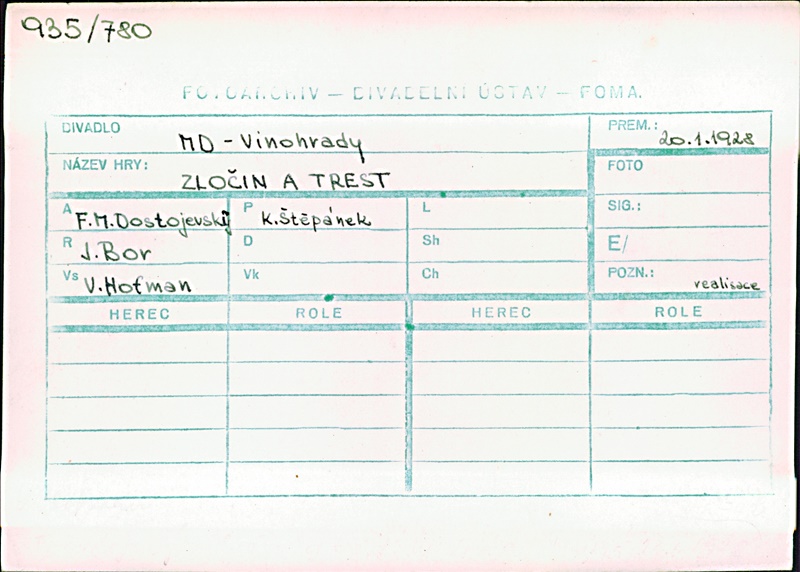 935/780
FOTOARCHIV — DIVADELNÍ ÚSTAV — FOMA.
DIVADLO MD - Vinohrady PREM.: 20.1.1928
NÁZEV HRY: ZLOČIN A TREST FOTO
A F.M.Dostojevskij P K.Štěpánek L SIG.:
R J.Bor D Sh E/
Vs V.Hofman Vk Ch POZN.: realisace
HEREC ROLE HEREC ROLE